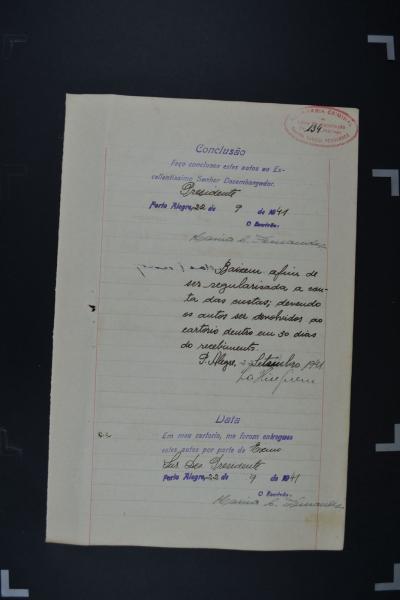 134
Conclusão
Faço conclusos estes autos ao Ex-
cellentissimo Senhor Desembargador.
Presidente
Porto Alegre, 22 de 9 de 1941
O Escrivão-
Marina C. Fernandes
Baixem, afim de
ser regularisada a con-
ta das custas; devendo
os autos ser devolvidos ao
cartorio dentro em 30 dias
do recebimento.
P. Alegre, 22 Setembro 1941
Data
Em meu cartorio, me foram entregues
estes autos por parte do Exmo
Snr. Des. Presidente
Porto Alegre, 22 de 9 de 1941
O Escrivão-
Marina C. Fernandes